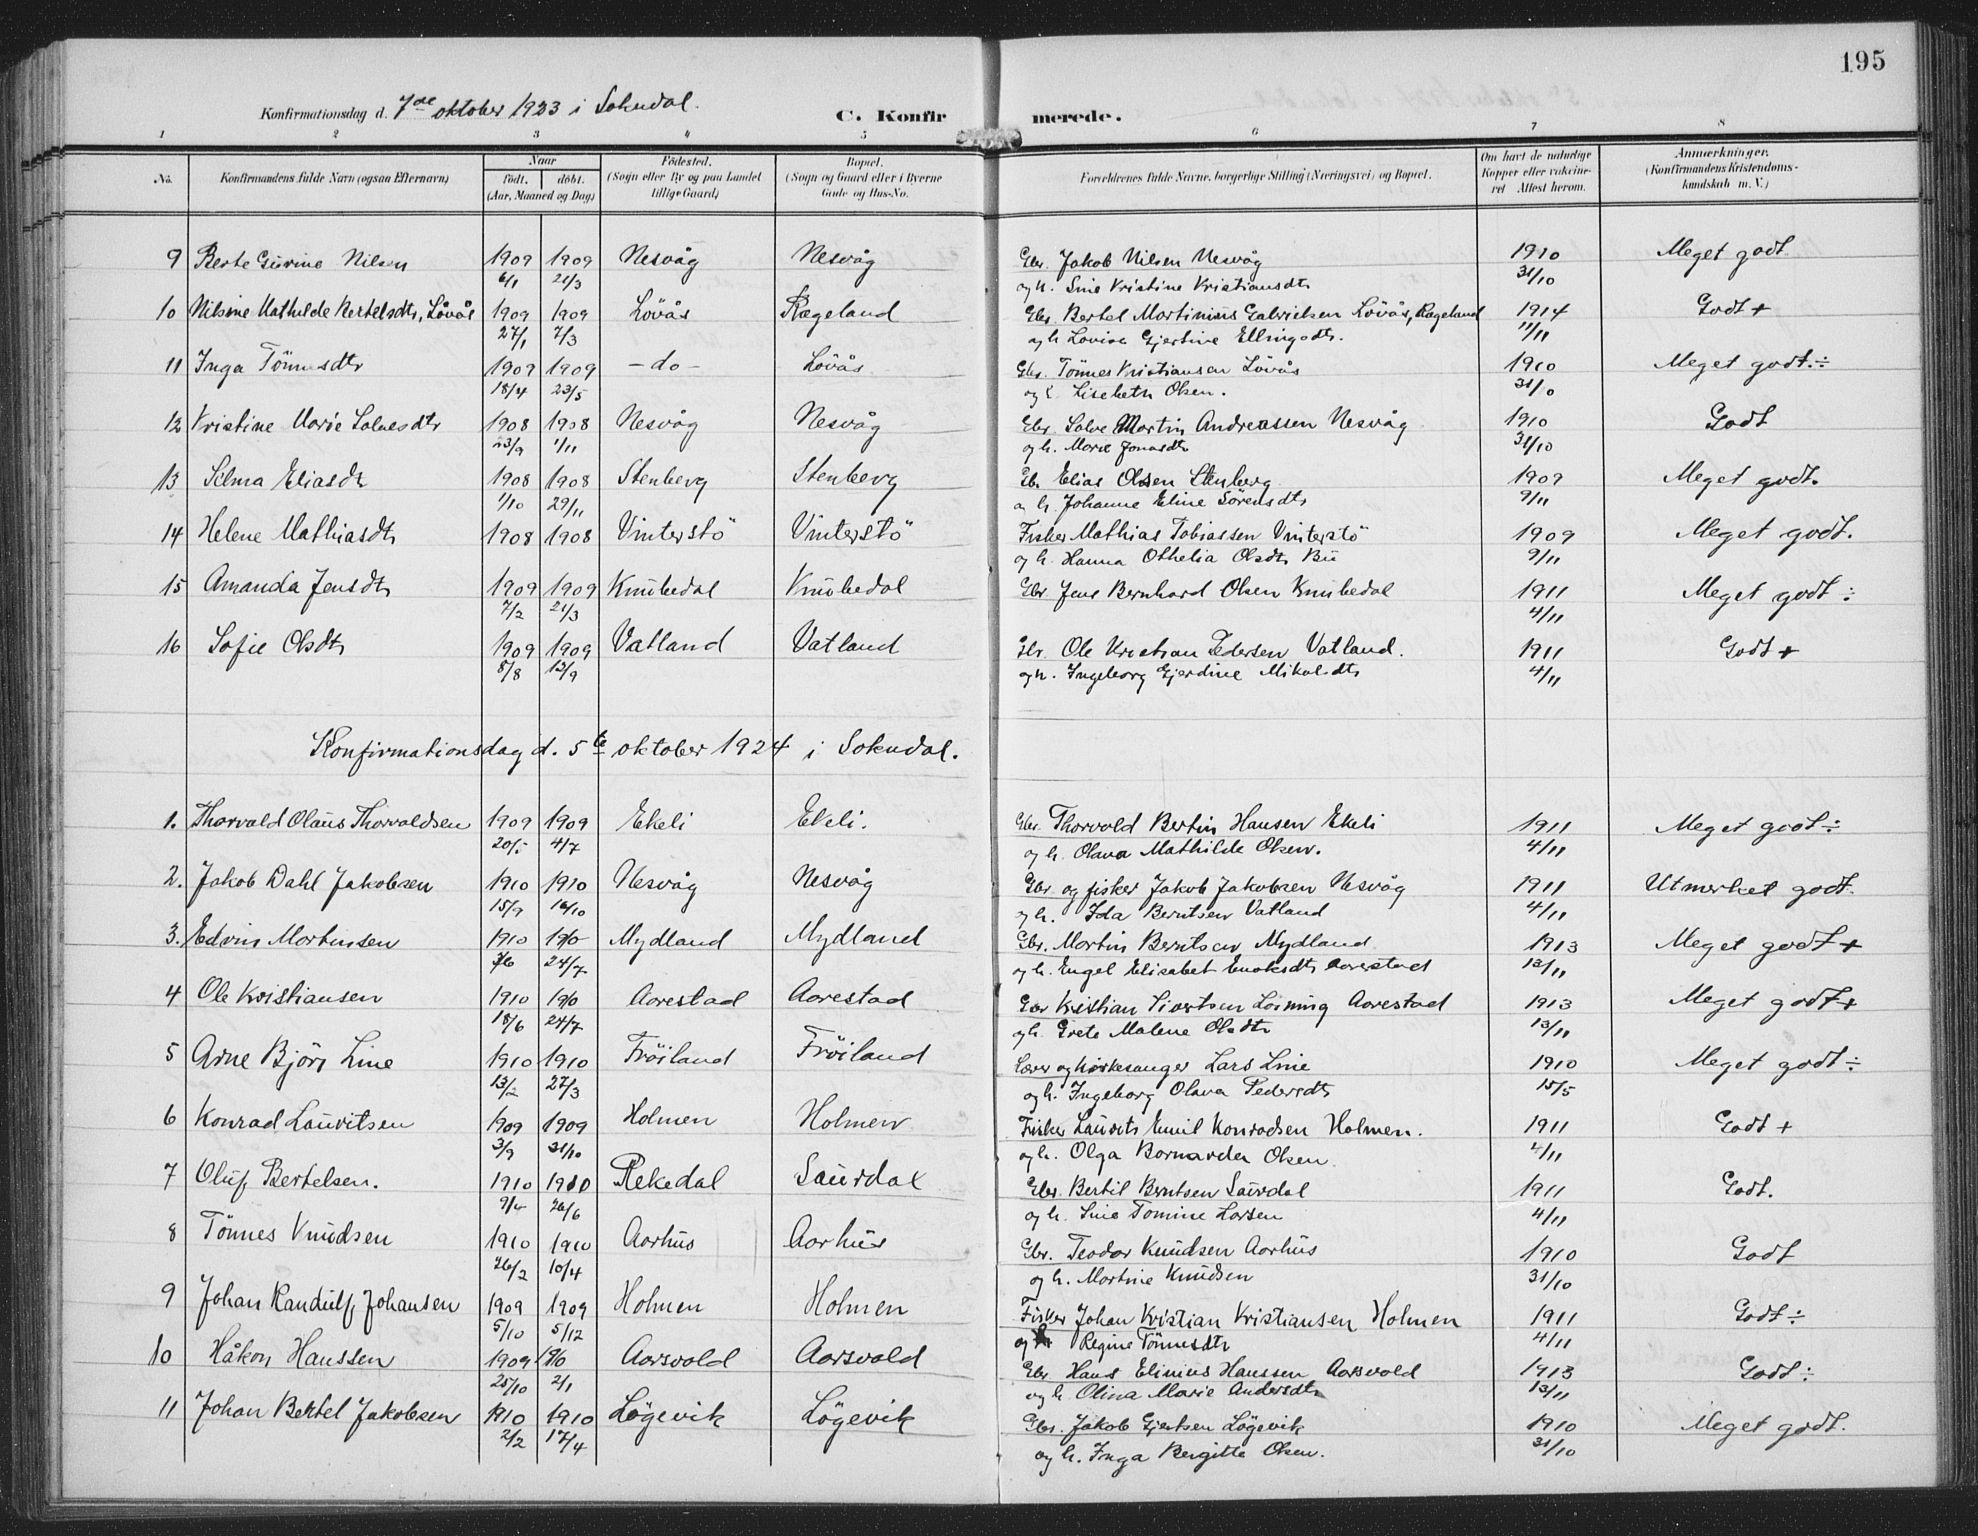 195
Konfirmationsdag d. 7de oktober 1923 i Sokndal. C. Konfirmerede.
1 2 3 4 5 6 7 8
No. Konfirmandens fulde Navn (ogsaa Efternavn) Naar født. døbt. (Aar, Maaned og Dag) Fødested. (Sogn eller By og paa Landet tillige Gaard) Bopæl. (Sogn og Gaard eller i Byerne Gade og Hus-No. Forældrenes fulde Navne, borgerlige Stilling (Næringsvei) og Bopæl. Om havt de naturlige Kopper eller vaksineret Attest herom. Anmærkninger. (Konfirmandens Kristendomskundskab m. V.)
9 Berte Gurine Nilsen 1909 1909 Nesvåg Nesvåg Gbr. Jakob Nilsen Nesvåg 1910 Meget godt.
6/1 21/3 og h. Sine Kristine Kristiansdtr 31/10
10 Nilsine Mathilde Bertelsdtr, Lövås 1909 1909 Lövås Rægeland Gbr. Bertel Martinius Gabrielsen Lövås, Rægeland 1914 Godt +
27/1 7/3 og h. Lovise Gjertine Ellingsdtr. 11/11
11 Inga Tönnesdtr 1909 1909 – do – Lövås Gbr. Tönnes Kristiansen Lövås 1910 Meget godt. ÷
18/4 23/5 og Lisebeth Olsen. 31/10
12 Kristine Marie Salvesdtr 1908 1908 Nesvåg Nesvåg Gbr. Salve Martin Andreassen Nesvåg 1910 Godt
23/9 1/11 og h. Marie Jonasdtr 31/10
13 Selma Eliasdtr 1908 1908 Stenberg Stenberg Gbr Elias Olsen Stenberg 1909 Meget godt.
1/10 29/11 og h. Johanne Eline Sörensdtr 9/11
14 Helene Mathiasdtr 1908 1908 Vinterstö Vinterstö Fisker Mathias Tobiassen Vinterstö 1909 Meget godt.
og h. Hanna Othelia Olsdtr Bu 9/11
15 Amanda Jensdtr 1909 1909 Knubedal Knubedal Gbr. Jens Bernhard Olsen Knubedal 1911 Meget godt ÷
7/2 21/3 4/11
16 Sofie Olsdtr 1909 1909 Vatland Vatland Gbr. Ole Kristian Pedersen Vatland. 1911 Godt +
8/8 12/9 og h. Ingeborg Gjerdine Mikalsdtr 4/11
Konfirmationsdag d. 5te oktober 1924 i Sokndal.
1. Thorvald Olaus Thorvaldsen 1909 1909 Ekeli Ekeli. Gbr. Thorvald Bertin Hansen Ekeli 1911 Meget godt ÷
20/5 4/7 og h. Olava Mathilde Olsen. 4/11
2. Jakob Dahl Jakobsen 1910 1910 Nesvåg Nesvåg Gbr og fisker Jakob Jakobsen Nesvåg 1911 Utmerket godt.
15/9 16/10 og h. Ida Berntsen Vatland 4/11
3. Edvin Martinsen 1910 1910 Mydland Mydland Gbr. Martin Berntsen Mydland 1913 Meget godt +
24/7 og h. Engel Elisabet Enoksdtr Aarestad 13/11
4 Ole Kristiansen 1910 1910 Aarestad Aarestad Gbr Kristian Sivertsen Aarestad 1913 Meget godt +
18/6 24/7 og h. Grete Malene Olsdtr 13/11
5 Arne Björn Line 1910 1910 Fröiland Fröiland Lærer og kirkesanger Lars Line 1910 Meget godt ÷
13/2 27/3 og h. Ingeborg Olava Pedersdtr 15/5
6 Konrad Lauritsen 1909 1909 Holmen Holmen Fisker Laurits Emil Konradsen Holmen. 1911 Godt +
3/9 31/10 og h. Olga Bornarda Olsen. 4/11
7 Oluf Bertelsen. 1910 1910 Rekedal Saurdal Gbr. Bertil Berntsen Saurdal 1911 Godt.
9/4 26/6 og h. Sine Tomine Larsen 4/11
8 Tönnes Knudsen 1910 1910 Aarhus Aarhus Gbr. Teodor Knudsen Aarhus 1910 Godt
26/2 10/4 og h. Martine Knudsen 31/10
9 Johan Randulf Johansen 1909 1909 Holmen Holmen Fisker Johan Kristian Kristiansen Holmen 1911 Godt ÷
5/10 5/12 og h Regine Tönnesdtr 4/11
10 Håkon Hanssen 1909 1910 Aarsvold Aarsvold Gbr Hans Elinius Hanssen Aarsvold 1913 Godt ÷
25/10 2/1 og h. Olina Marie Andersdtr 13/11
11 Johan Bertel Jakobsen 1910 1910 Lögevik Lögevik Gbr. Jakob Gjertsen Lögevik 1910 Meget godt.
2/2 17/4 og h. Inga Bergitte Olsen. 31/10